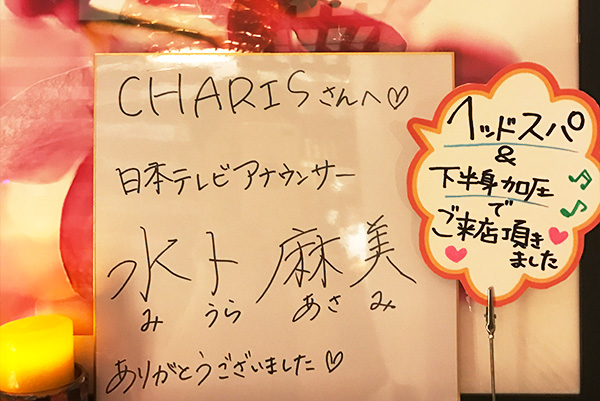 CHARISさんへ♡
日本テレビアナウンサー
水卜麻美
みうらあさみ
ありがとうございました♡
ヘッドスパ
&
下半身加圧
で
ご来店頂き
ました